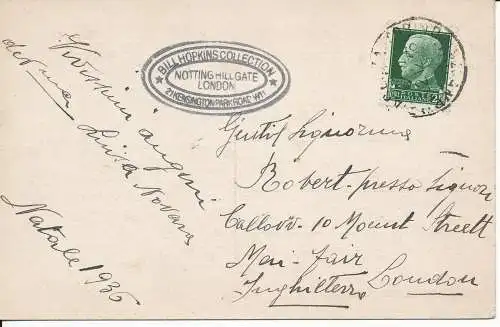 Vivissimi auguri
Luisa Novara
Natale 1936
BILL HOPKINS COLLECTION
NOTTING HILL GATE
LONDON
21 KENSINGTON PARK ROAD W11
Gentil Signorina
Robert - presso Signor
10 Mount Streett
Mai-fair
London
Inghilterra